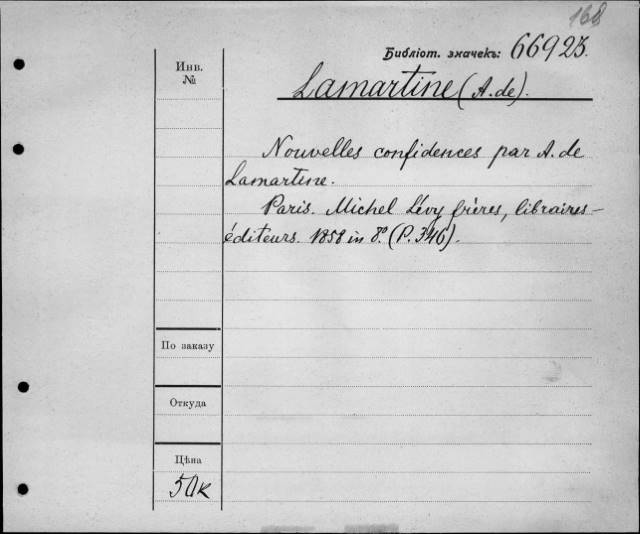 168
Библіот. значекъ: 66923.
Инв.
№
Lamartine (A. de).
Nouvelles confidences par A. de
Lamartine.
Paris. Michel Lévy frères, libraires-
éditeurs. 1858 in 8º. (P. 346).
По заказу
Откуда
Цѣна
50к